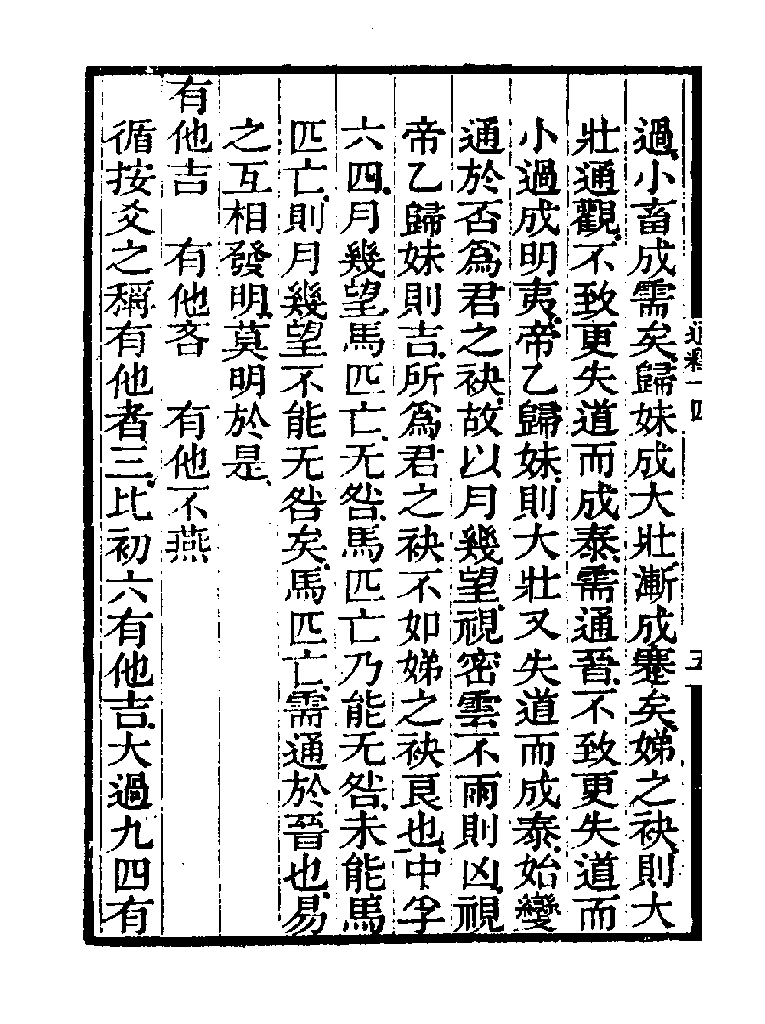 過小畜成需矣歸妹成大壯漸成蹇矣娣之袂則大
壯通觀不致更失道而成泰需通晉不致更失道而
小過成明夷帝乙歸妹則大壯又失道而成泰始變
通於否爲君之袂故以月幾望視密雲不雨則凶視
帝乙歸妹則吉所爲君之袂不如娣之袂良也中孚
六四月幾望馬匹亡无咎馬匹亡乃能无咎未能馬
匹亡則月幾望不能无咎矣馬匹亡需通於晉也易
之互相發明莫明於是
有他吉　有他吝　有他不燕
循按爻之稱有他者三比初六有他吉大過九四有
通釋十四
五